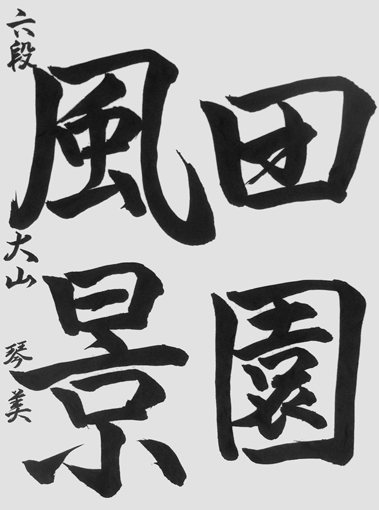 田園
風景
六段 大山 琴美